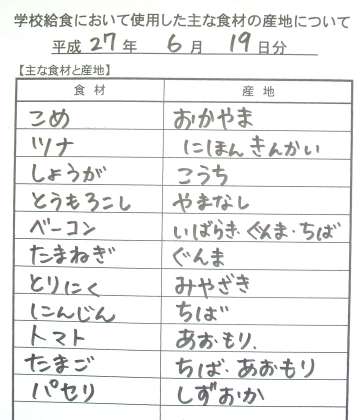 学校給食において使用した主な食材の産地について
平成 27 年 6 月 19 日分
【主な食材と産地】
食 材 産 地
こめ おかやま
ツナ にほんきんかい
しょうが こうち
とうもろこし やまなし
ベーコン いばらき・ぐんま・ちば
たまねぎ ぐんま
とりにく みやざき
にんじん ちば
トマト あおもり.
たまご ちば・あおもり
パセリ しずおか